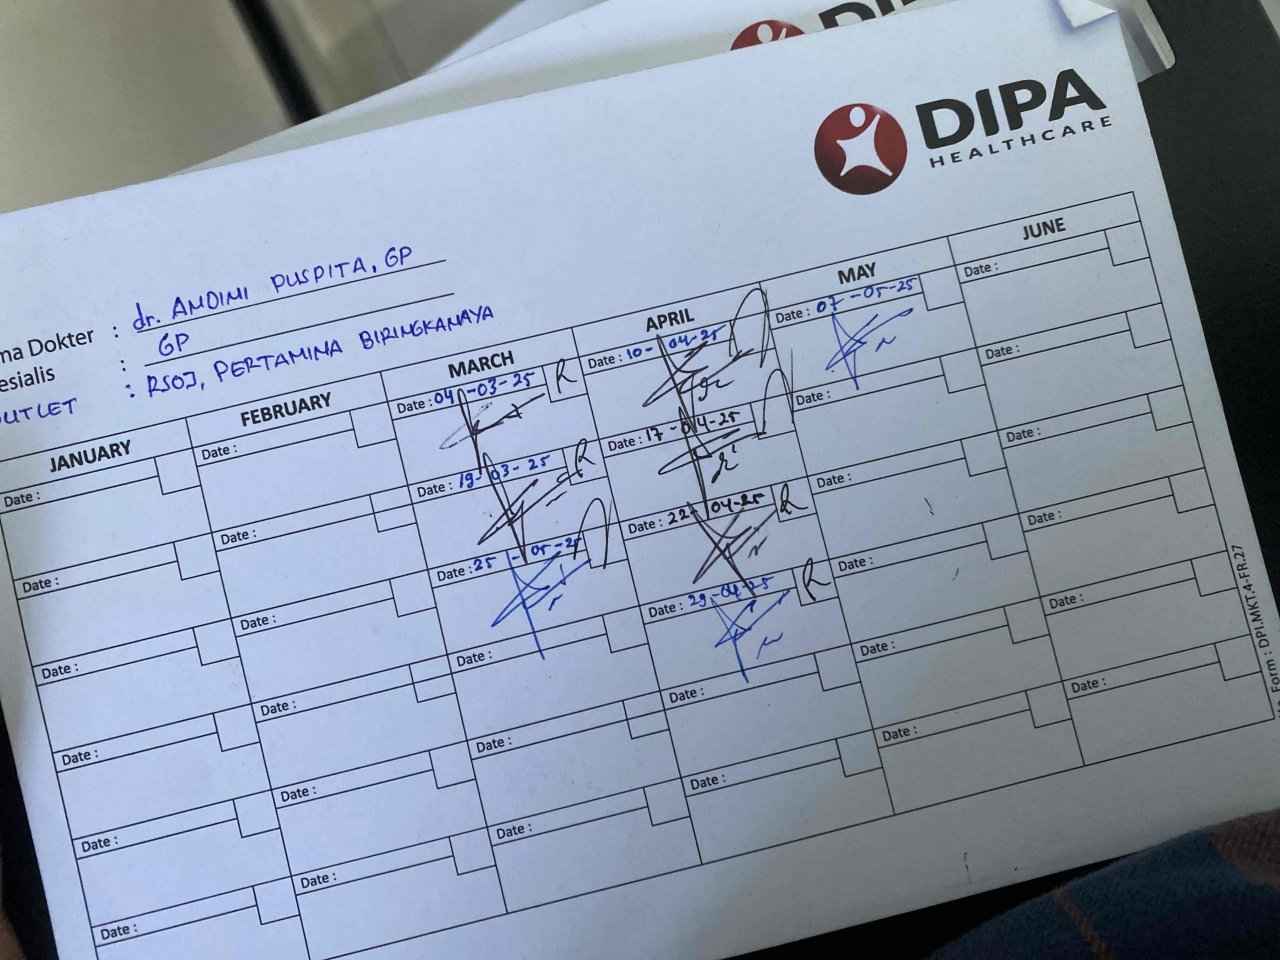 DIPA
DIPA
HEALTHCARE
ma Dokter : dr. ANDINI PUSPITA, GP
esialis : GP
OUTLET : RSOJ, PERTAMINA BIRINGKANAYA
JANUARY FEBRUARY MARCH APRIL MAY JUNE
Date : Date : Date : 04-03-25 R Date : 10-04-25 Date : 07-05-25 Date :
Date : Date : Date : 19-03-25 R Date : 17-04-25 Date : Date :
Date : Date : Date : 25-05-25 Date : 22-04-25 R Date : Date :
Date : Date : Date : Date : 29-04-25 R Date : Date :
Date : Date : Date : Date : Date : Date :
Date : Date : Date : Date : Date : Date :
Form : DPI.MKT.4-FR.27